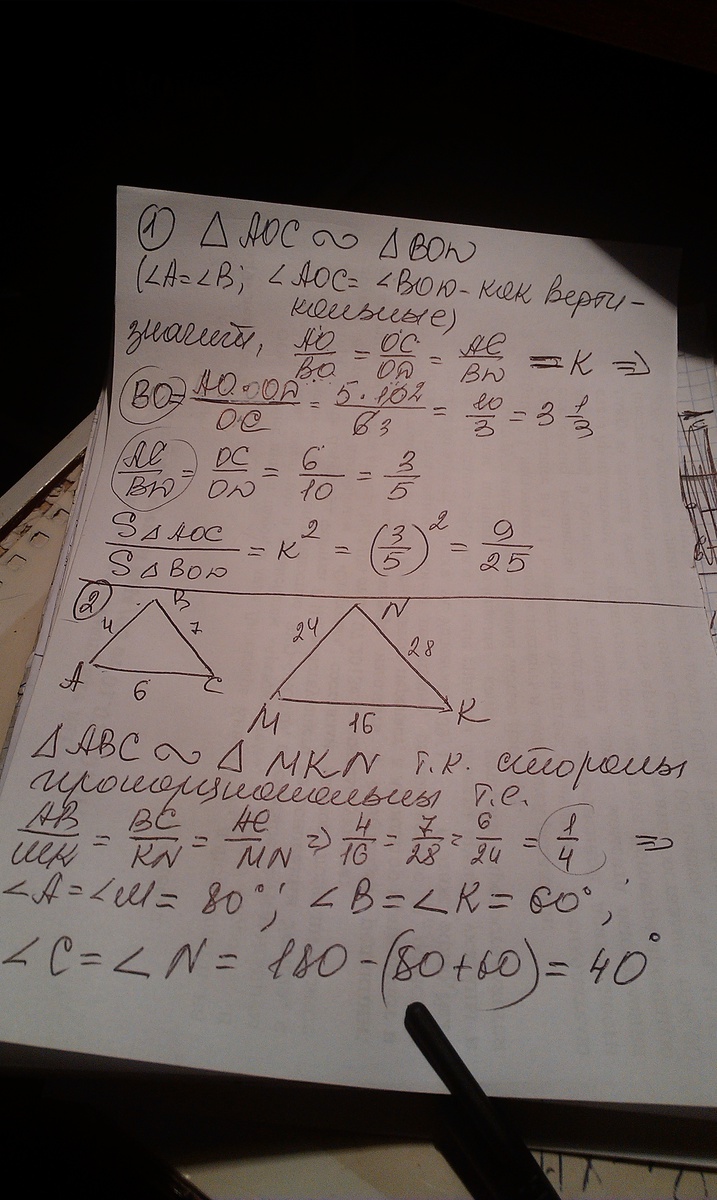 ① △ AOC ∾ △ BOD
(∠A=∠B; ∠AOC= ∠BOD - как верти-
кальные)
значит, AO/BO = OC/OD = AC/BD = K ⇒
BO = AO·OD/OC = 5·10/6 3 = 10/3 = 3 1/3
AC/BD = OC/OD = 6/10 = 3/5
S△AOC/S△BOD = K² = (3/5)² = 9/25
② B N
4 7 24 28
A 6 C M 16 K
△ABC ∾ △ MKN т.к. стороны
пропорциональны т.е.
AB/MK = BC/KN = AC/MN ⇒ 4/16 = 7/28 = 6/24 = 1/4 ⇒
∠A=∠M= 80°; ∠B=∠K= 60°;
∠C=∠N= 180-(80+60)= 40°